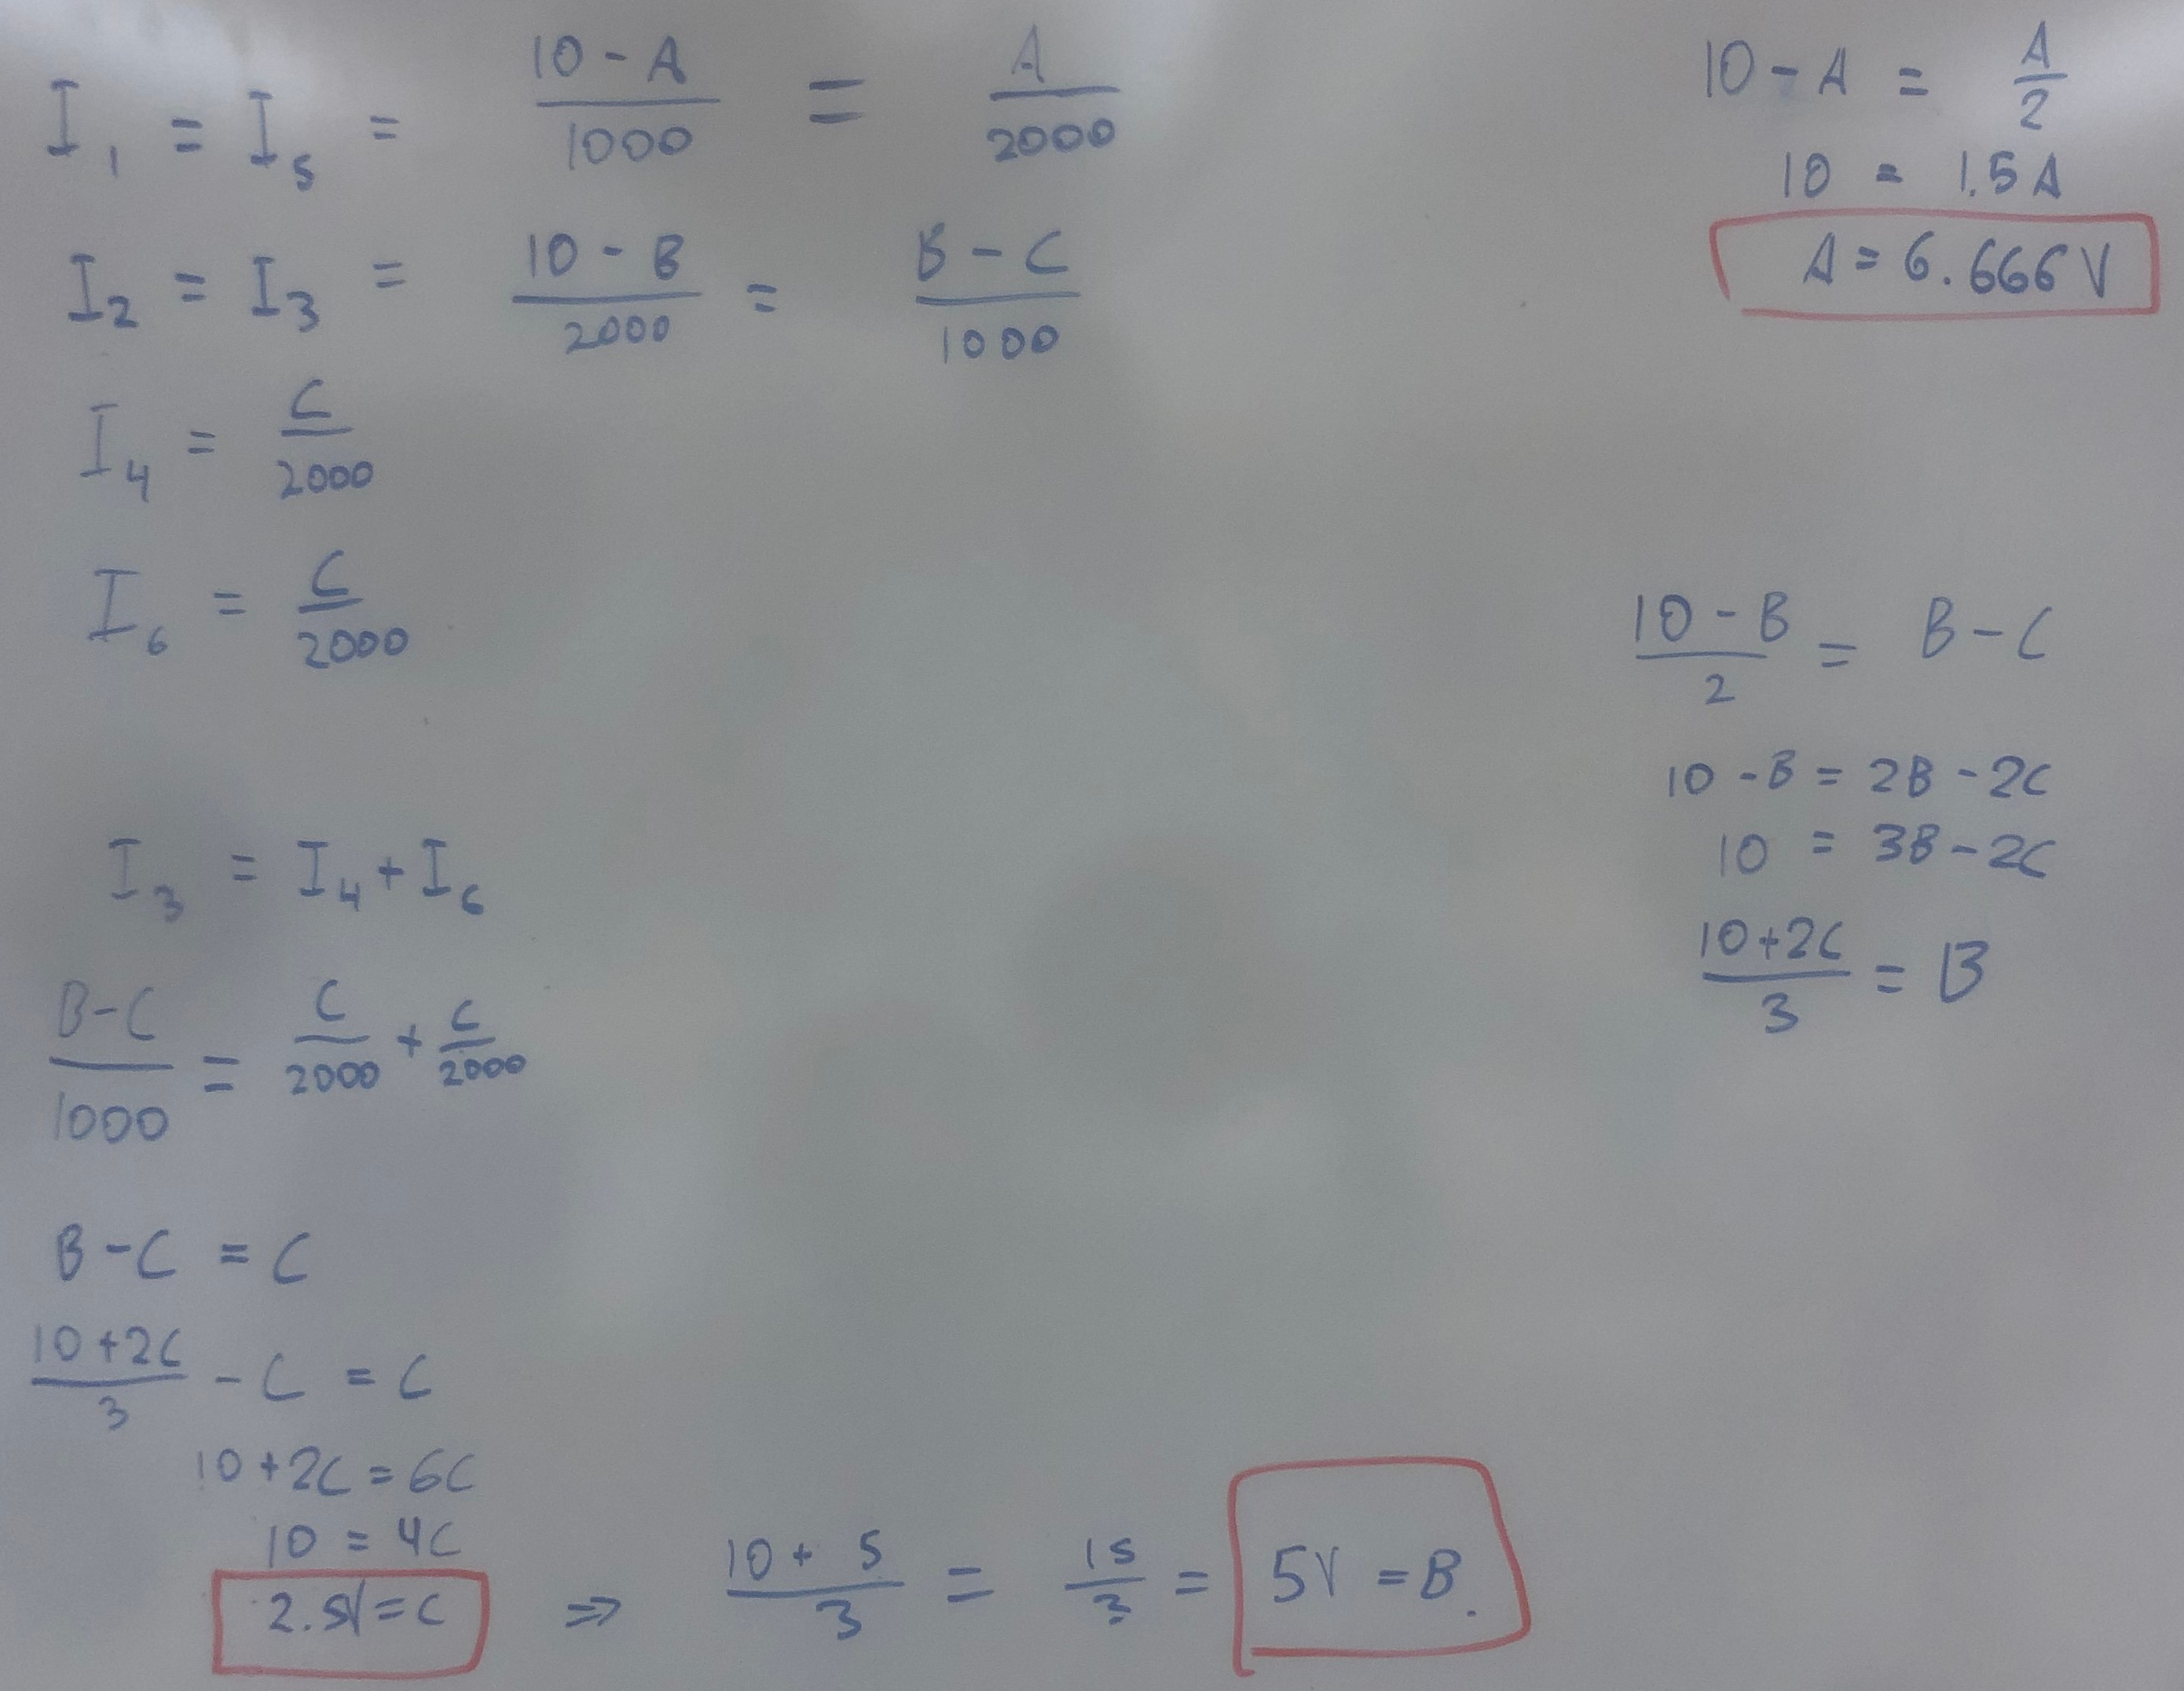 I₁ = I₅ = (10 - A)/1000 = A/2000
I₂ = I₃ = (10 - B)/2000 = (B - C)/1000
I₄ = C/2000
I₆ = C/2000
I₃ = I₄ + I₆
(B - C)/1000 = C/2000 + C/2000
B - C = C
(10 + 2C)/3 - C = C
10 + 2C = 6C
10 = 4C
2.5V = C ⇒ (10 + 5)/3 = 15/3 = 5V = B.
10 - A = A/2
10 = 1.5A
A = 6.666V
(10 - B)/2 = B - C
10 - B = 2B - 2C
10 = 3B - 2C
(10 + 2C)/3 = B